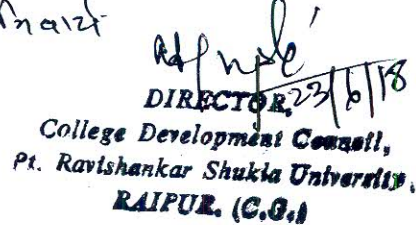 23/6/18
DIRECTOR,
College Development Council,
Pt. Ravishankar Shukla University,
RAIPUR. (C.G.)